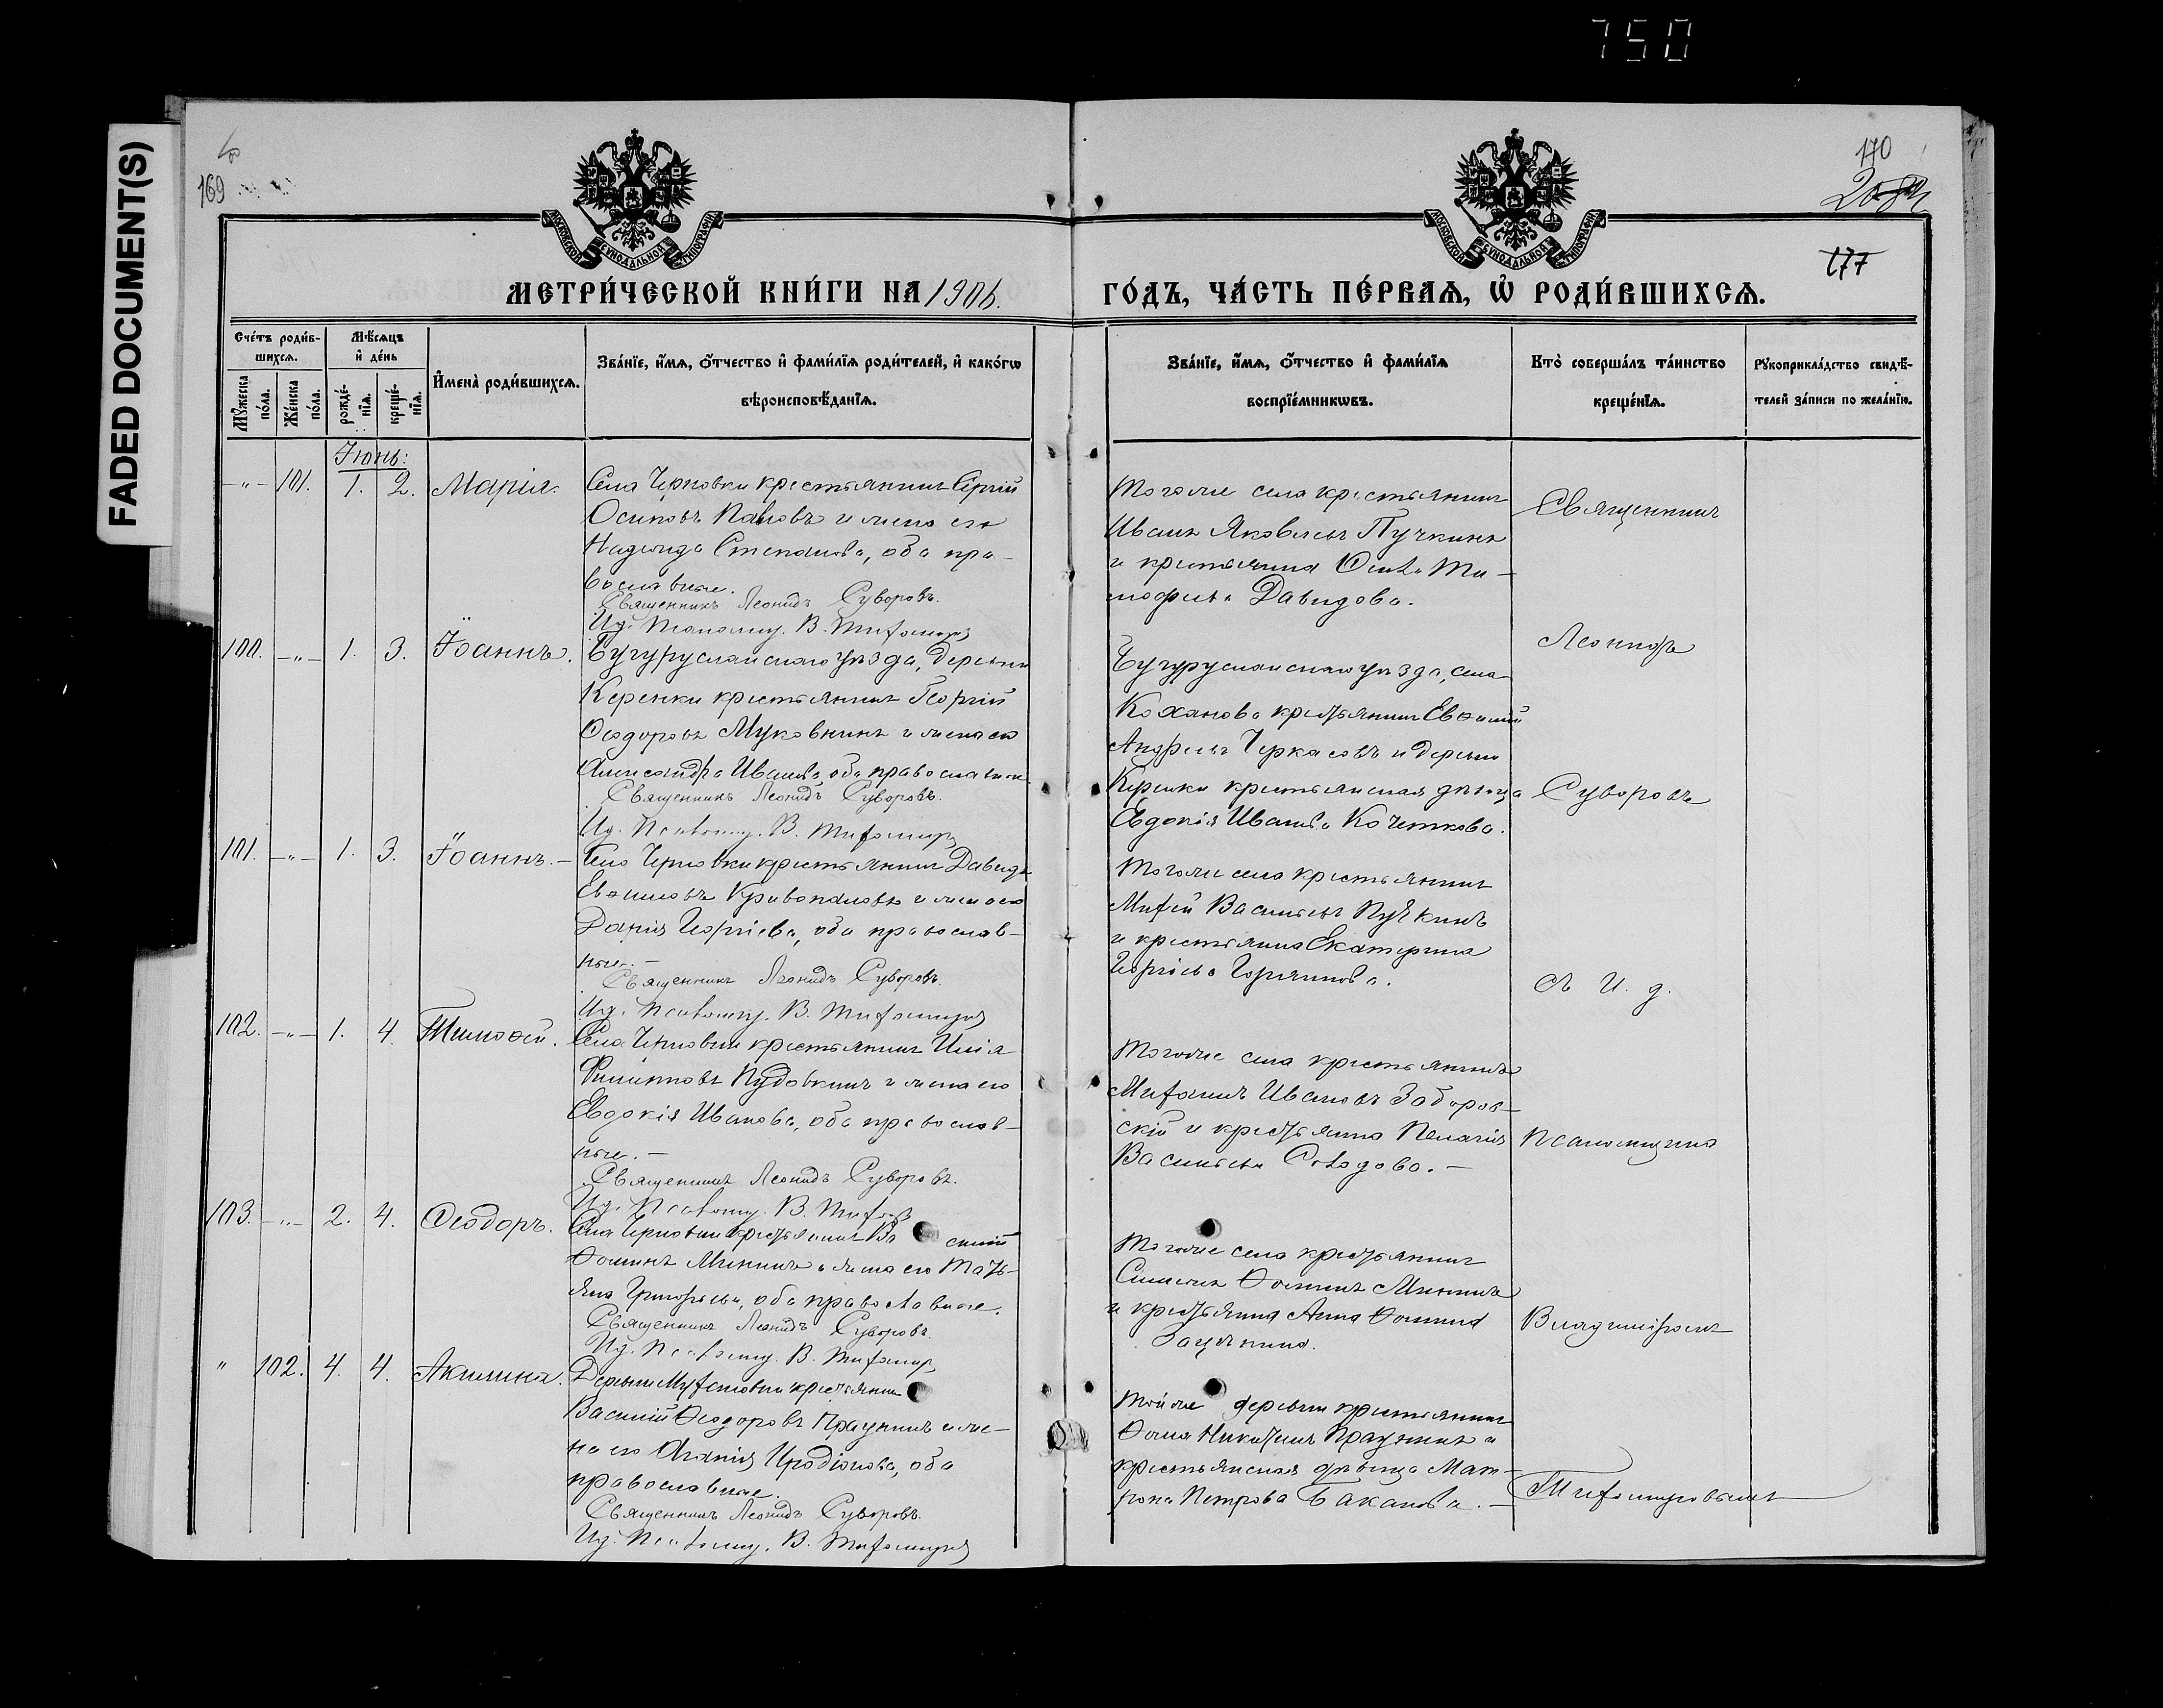 750
FADED DOCUMENT(S)
169
170
177
МОСКОВСКОЙ СѴНОДАЛЬНОЙ ТИПОГРАФІИ
МОСКОВСКОЙ СѴНОДАЛЬНОЙ ТИПОГРАФІИ
МЕТРИ́ЧЕСКОЙ КНИ́ГИ НА 1906.
ГО́ДЪ, ЧА́СТЬ ПЕ́РВАѦ, Ѡ҆ РОДИ́ВШИХСѦ.
Сче́тъ роди́в-
шихсѧ.
Мѣ́сѧцъ
и҆ де́нь
Мꙋ́жеска по́ла.
Же́нска по́ла.
рожде́-
нїѧ.
креще́-
нїѧ.
И҆мена̀ роди́вшихсѧ.
Зва́нїе, и҆́мѧ, ѻ҆́тчество и҆ фами́лїѧ роди́телей, и҆ како́гѡ
вѣроисповѣ́данїѧ.
Зва́нїе, и҆́мѧ, ѻ҆́тчество и҆ фами́лїѧ
воспрїе́мникѡвъ.
Кто̀ соверша́лъ та́инство
креще́нїѧ.
Рꙋкоприкла́дство свидѣ́-
телей за́писи по жела́нїю.
Іюнь:
-„- 101. 1. 2. Марія.
Села Черновки крестьянинъ Сергій
Осиповъ Павловъ и жена его
Надежда Степанова, оба пра-
вославные.
Священникъ Леонидъ Суворовъ.
И.д. Псаломщ. В. Тихомировъ
Тогоже села крестьянинъ
Иванъ Яковлевъ Пучкинъ
и крестьянка Ти-
мофеева Давидова.
100. -„- 1. 3. Іоаннъ.
Бугурусланскаго уѣзда, деревни
Керенки крестьянинъ Георгій
Ѳеодоровъ Муковнинъ и жена его
Александра Иванова, оба православные
Священникъ Леонидъ Суворовъ.
И.д. Псаломщ. В. Тихомировъ
Бугурусланскаго уѣзда, села
Коханова крестьянинъ Евѳимій
Андреевъ Черкасовъ и деревни
Керенки крестьянская дѣвица
Евдокія Иванова Кочеткова.
101. -„- 1. 3. Іоаннъ. -
Села Черновки крестьянинъ Давидъ
Евѳимовъ и жена его
Дарія Георгіева, оба православ-
ные. -
Священникъ Леонидъ Суворовъ.
И.д. Псаломщ. В. Тихомировъ
Тогоже села крестьянинъ
Михей Васильевъ Пучкинъ
и крестьянка Екатерина
Георгіева Горяинова.
102. -„- 1. 4. Тимоѳей.
Села Черновки крестьянинъ Илія
Филипповъ Пудовкинъ и жена его
Евдокія Иванова, оба православ-
ные. -
Священникъ Леонидъ Суворовъ.
И.д. Псаломщ. В. Тихомировъ
Тогоже села крестьянинъ
Митрофанъ Ивановъ Заборов-
скій и крестьянка Пелагія
Васильева -
103. -„- 2. 4. Ѳеодоръ.
Села Черновки крестьянинъ силій
Ѳоминъ Мининъ и жена его Тать-
яна Григорьева, оба православные.
Священникъ Леонидъ Суворовъ.
И.д. Псаломщ. В. Тихомировъ
Тогоже села крестьянинъ
Симеонъ Ѳоминъ Мининъ
и крестьянка Анна Ѳомина
Зацепина.
„ 102. 4. 4. Акилина.
Деревни крестьянинъ
Василій Ѳеодоровъ и же-
на его Агапія Иродіонова, оба
православные.
Священникъ Леонидъ Суворовъ.
И.д. Псаломщ. В. Тихомировъ
Тойже деревни крестьянинъ
Ѳома Никитинъ и
крестьянская дѣвица Мат-
рона Петрова Баканова. -
Священникъ
Леонидъ
Суворовъ
съ И. д.
Псаломщика
Владиміромъ
Тихомировымъ